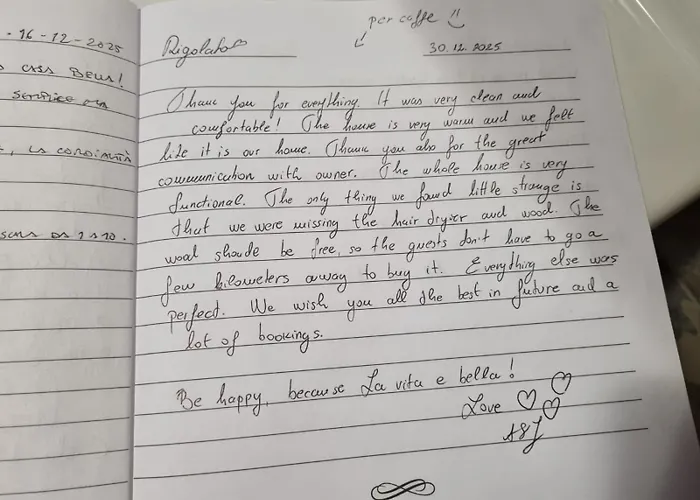 16-12-2025
CASA BELLA!
LA CORDIALITÀ
SCALA DA 1 A 10.
per caffe !!
Rigolato
30.12.2025
Thank you for everything. It was very clean and
comfortable! The house is very warm and we felt
like it is our home. Thank you also for the great
communication with owner. The whole house is very
functional. The only thing we found little strange is
that we were missing the hair dryier and wood. The
wood shoude be free, so the guests don't have to go a
few kilometers away to buy it. Everything else was
perfect. We wish you all the best in future and a
lot of bookings.
Be happy, because La vita e bella!
Love
A&J